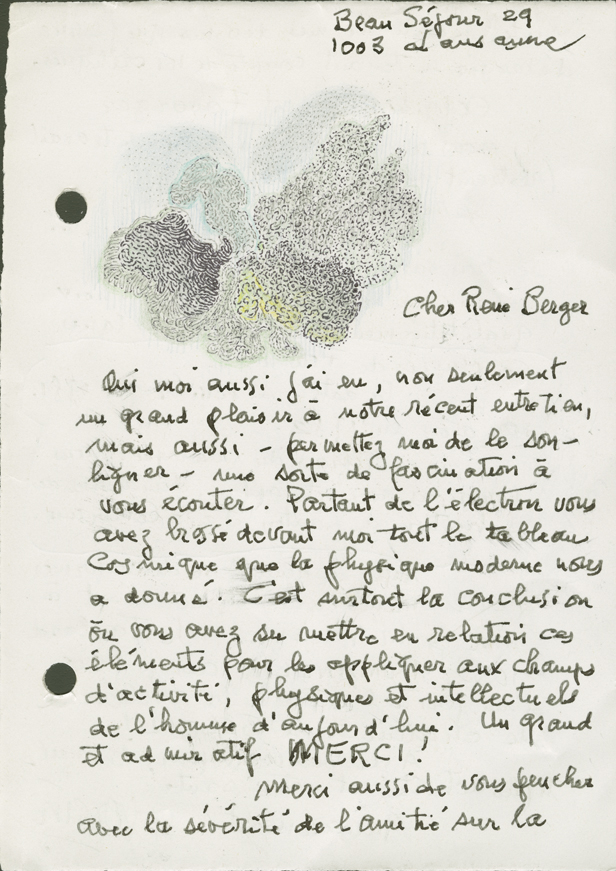 Beau Séjour 29
1003 Lausanne
Cher René Berger
Oui moi aussi j'ai eu, non seulement
un grand plaisir à notre récent entretien,
mais aussi – permettez moi de le sou-
ligner – une sorte de fascination à
vous écouter. Partant de l'électron vous
avez brossé devant moi tout le tableau
Cosmique que la physique moderne nous
a donné. C'est surtout la conclusion
où vous avez su mettre en relation ces
éléments pour les appliquer aux champs
d'activité, physiques et intellectuels
de l'homme d'aujourd'hui. Un grand
et admiratif MERCI!
Merci aussi de vous pencher
avec la sévérité de l'amitié sur la